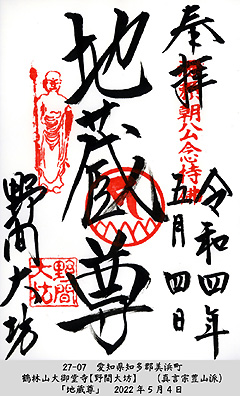 奉拝
頼朝公念持佛
令和四年
五月四日
地蔵尊
野間大坊
野間
大坊
27-07 愛知県知多郡美浜町
鶴林山大御堂寺【野間大坊】 (真言宗豊山派)
「地蔵尊」 2022年5月4日